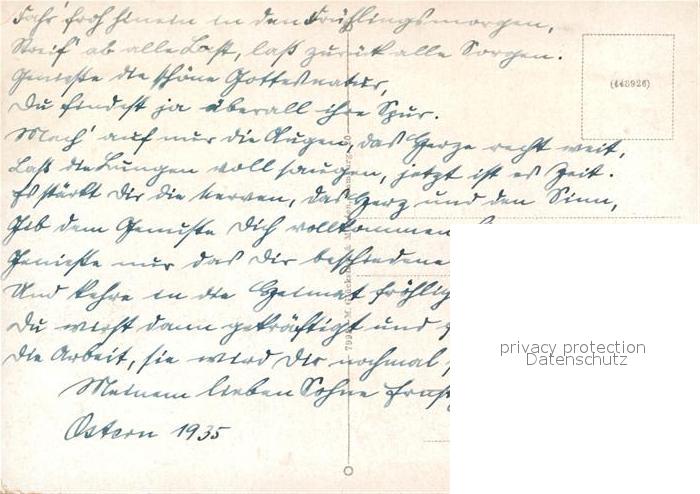 Fahr' froh hinein in den Frühlingsmorgen,
Streif' ab alle Last, laß zurück alle Sorgen.
Genieße die schöne Gottesnatur,
Du findest ja überall ihre Spur.
Mach' auf nur die Augen, das Herze recht weit,
Laß die Lungen voll saugen, jetzt ist es Zeit.
Es stärkt Dir die Nerven, das Herz und den Sinn,
Gib dem Genusse Dich vollkommen
Genieße nur das Dir beschiedene
Und kehre in die Heimat fröhlich
Du wirst dann gekräftigt und
die Arbeit, sie wird Dir nochmal
Meinem lieben Sohne Ernst
Ostern 1935
(448926)
privacy protection
Datenschutz